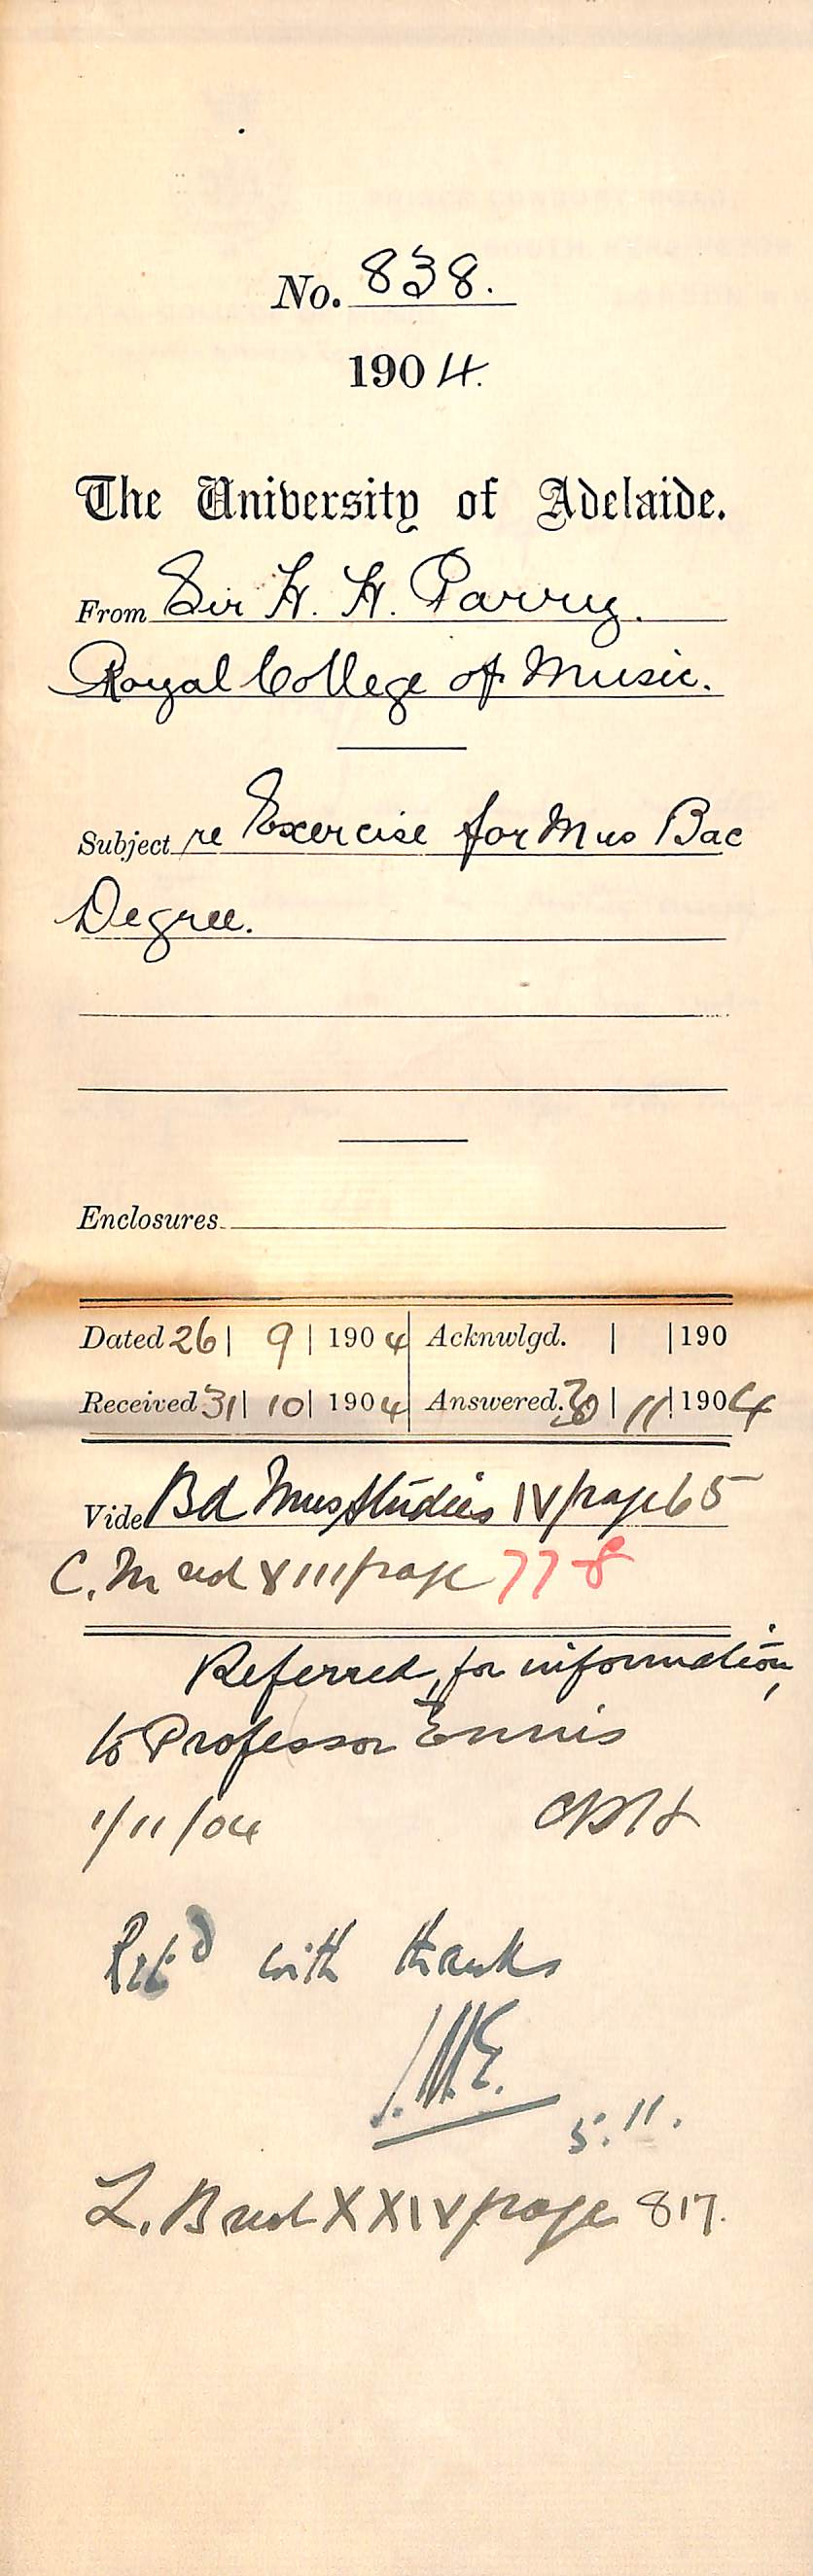 No. 838.
1904.
The University of Adelaide.
From Sir H. H. Parry.
Royal College of Music.
Subject re Exercise for Mus Bac
Degree.
Enclosures
Dated 26 | 9 | 1904 Acknwlgd. | | 190
Received 31 | 10 | 1904 Answered. 30 | 11 | 1904
Vide Bd Mus Studies IV page 65
C. M vol XIII page 778
Referred, for information,
to Professor Ennis
1/11/04 CRH
Ret'd with thanks
J.M.E.
5.11.
L. B vol XXIV page 817.